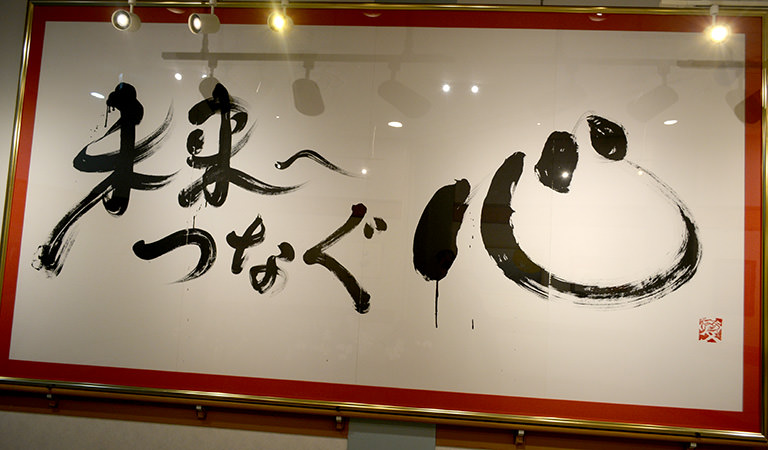 未来へ
つなぐ
心